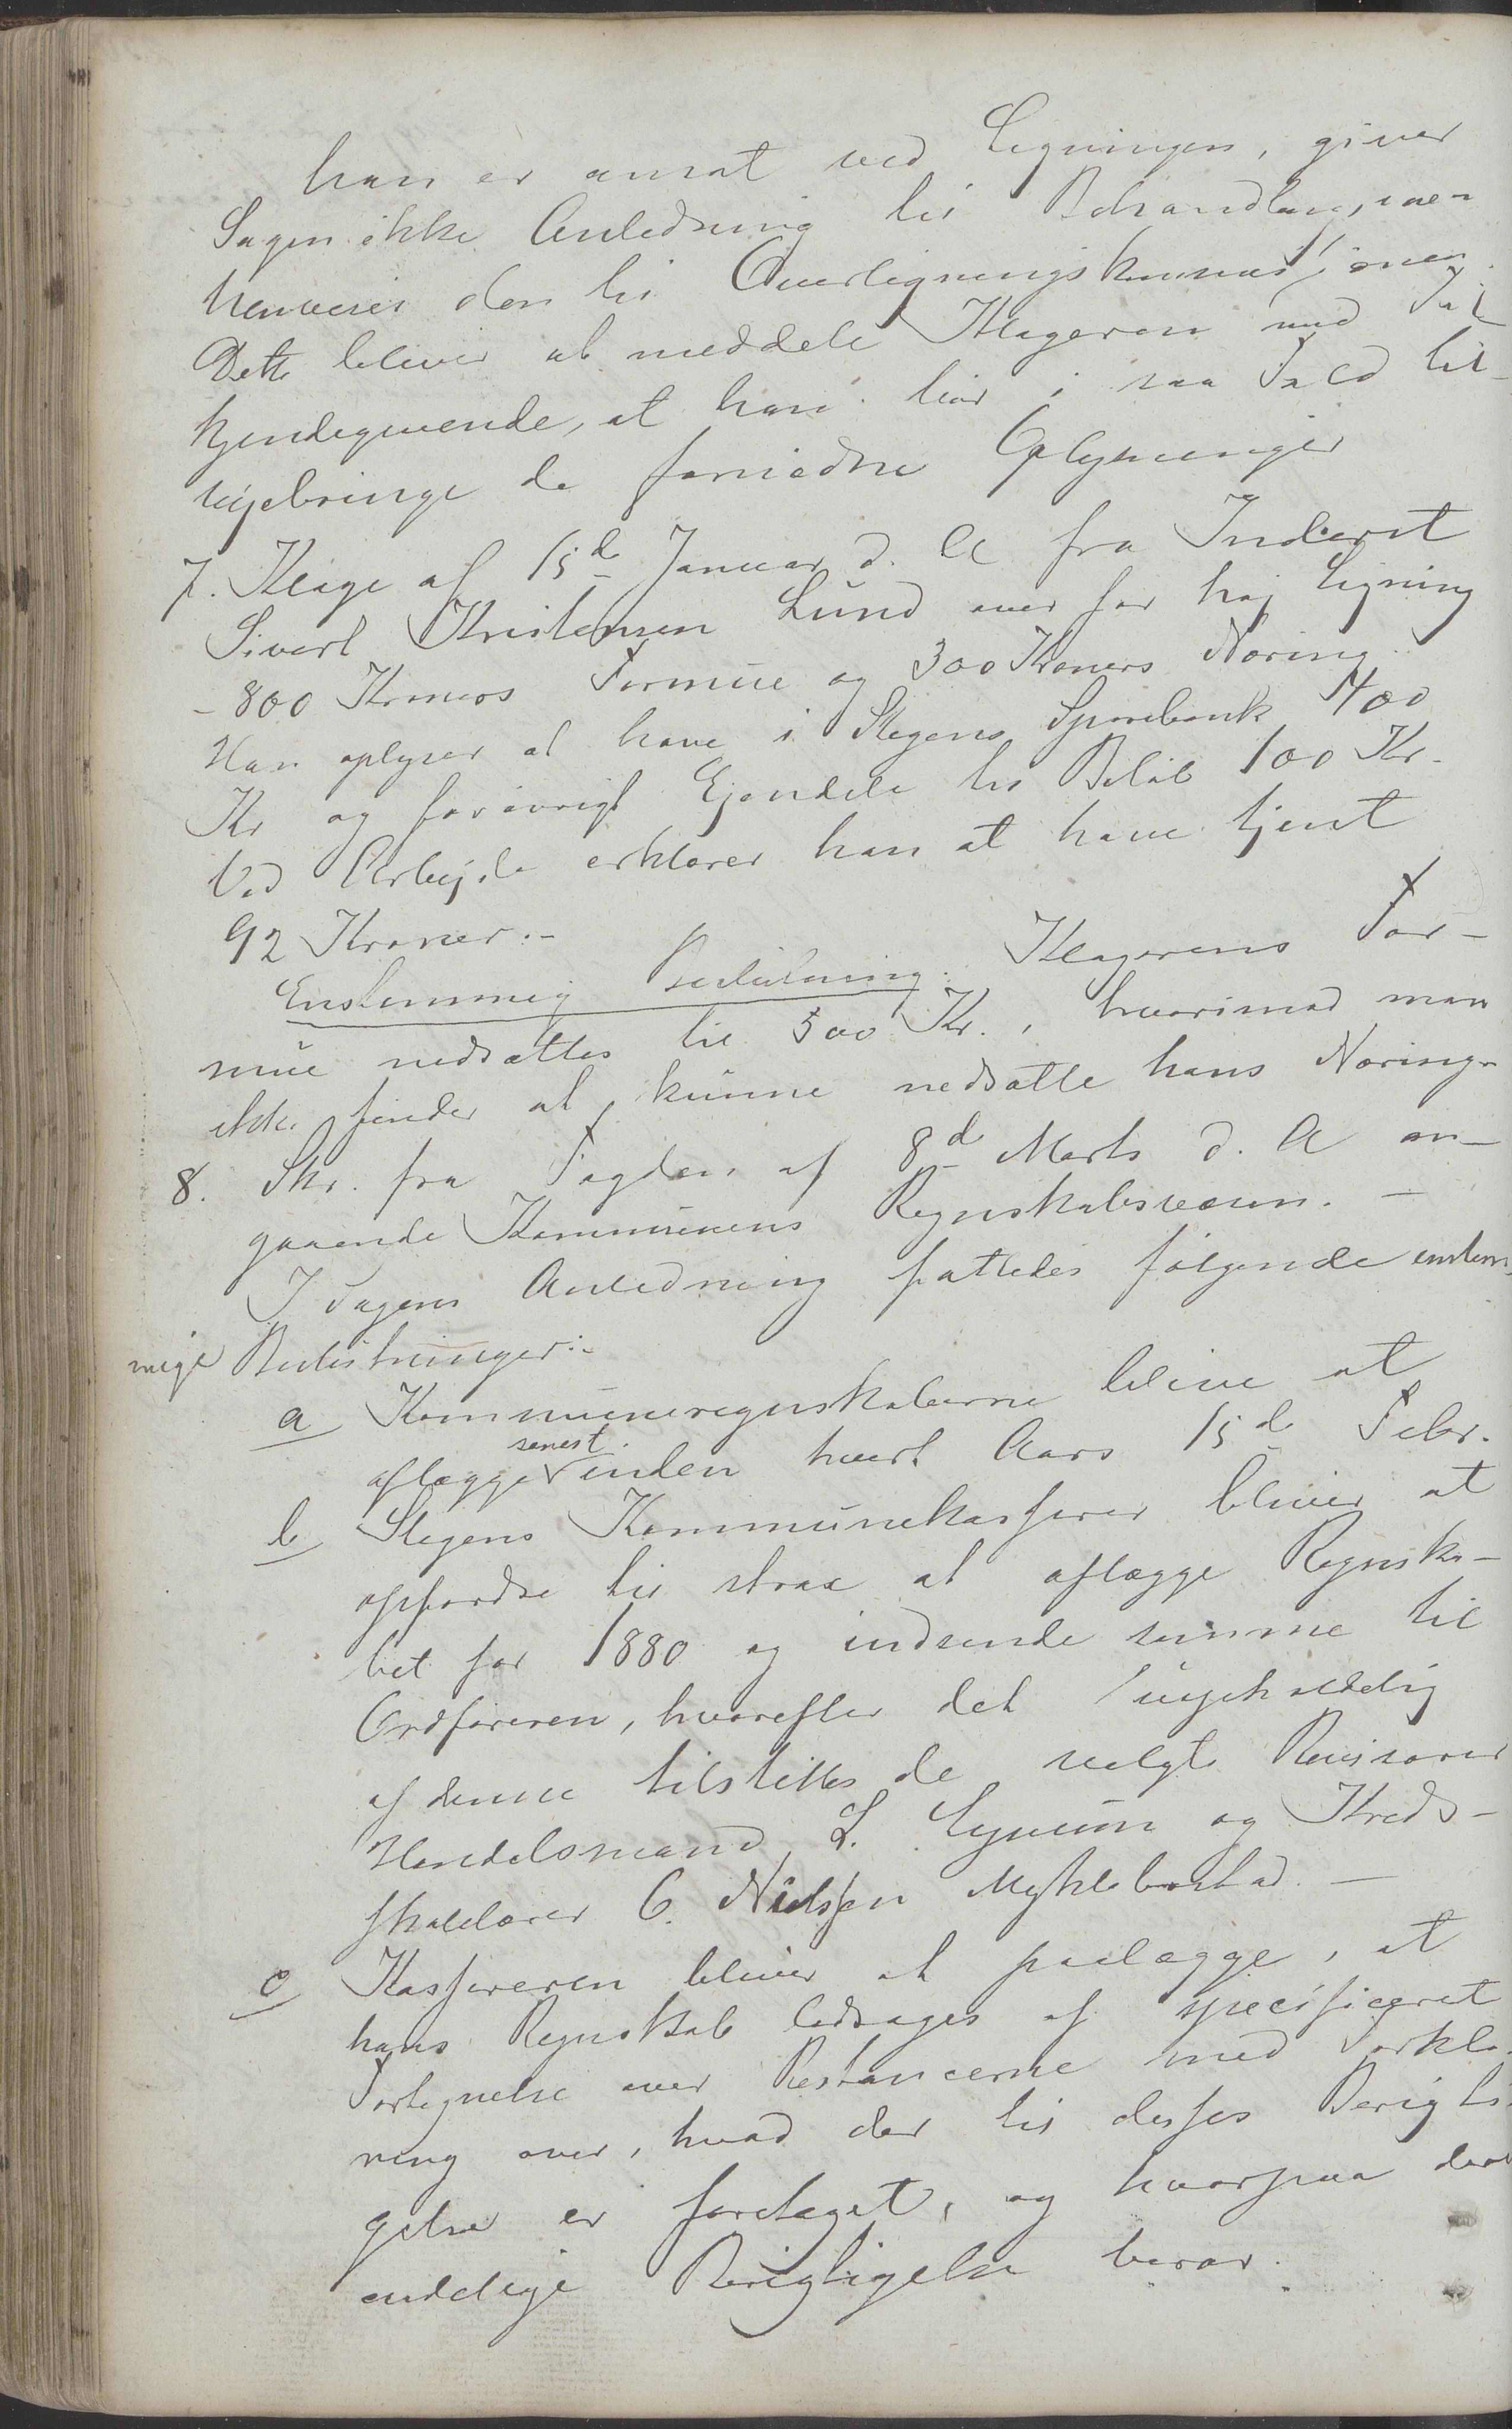 han er ansat ved Ligningen, giver
Sagen ikke Anledning til Behandling, men
henviser den til Overligningskommissionen.
Dette bliver at meddele Klageren med Til-
kjendegivende, at han bør i saa Fald til-
vejebringe de fornødne Oplysninger
7. Klage af 15de Januar d. A fra Inderst
Sivert Kristensen Lund over for høj Ligning
- 800 Kroners Formue og 300 Kroners Næring.
Han oplyser at have i Stegens Sparebank 400
Kr og forøvrigt Ejendele til Beløb 100 Kr.
Ved Arbejde erklærer han at have tjent
92 Kroner.-
Enstemmig Beslutning. Klagerens For-
mue nedsættes til 500 Kr., hvorimod man
ikke finder at kunne nedsætte hans Næring.
8. Skr. fra Fogden af 8de Marts d. A an-
gaaende Kommunens Regnskabsvæsen. -
I Sagens Anledning fattedes følgende enstem-
mige Beslutninger:-
a Kommuneregnskaberne blive at
aflægge senest inden hvert Aars 15de Febr.
b Stegens Kommunekasserer bliver at
opfordre til strax at aflægge Regnska-
bet for 1880 og indsende samme til
Ordføreren, hvorefter det uopholdelig
af denne tilstilles de valgte Revisorer
Handelsmand L. Lynum og Kreds-
skolelærer C. Nielssen Myklebostad. -
c Kassereren bliver at paalægge, at
hans Regnskab ledsages af specificeret
Fortegnelse over Restancerne med Forkla-
ring over, hvad der til disses Berigti-
gelse er foretaget, og hvorpaa deres
endelige Berigtigelse beror.